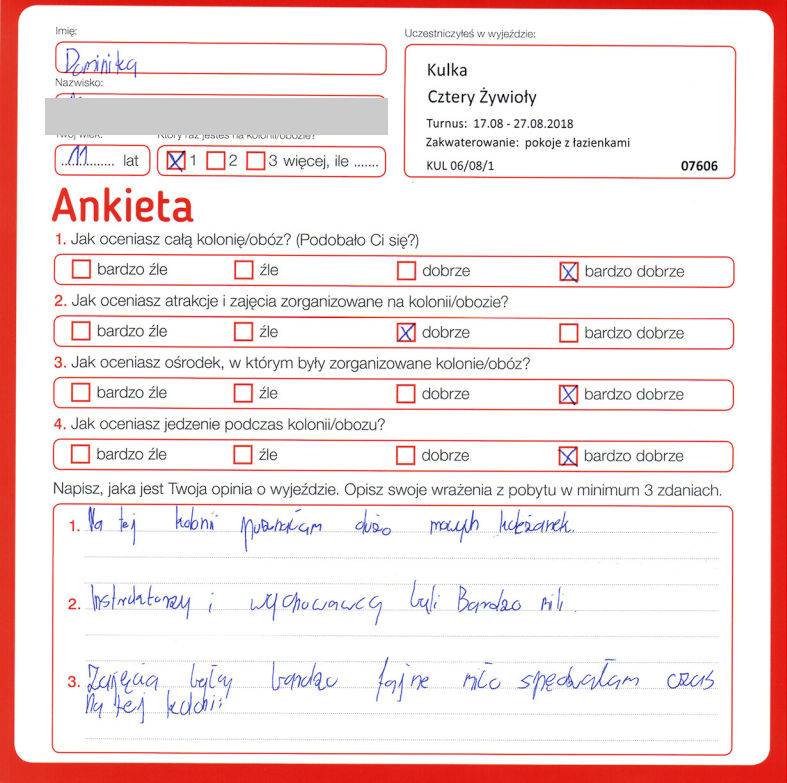 Imię:
Uczestniczyłeś w wyjeździe:
Dominika
Nazwisko:
Kulka
Cztery Żywioły
Turnus: 17.08 - 27.08.2018
Zakwaterowanie: pokoje z łazienkami
KUL 06/08/1 07606
Twój wiek: Który raz jesteś na kolonii/obozie?
11 lat 1 2 3 więcej, ile .......
Ankieta
1. Jak oceniasz całą kolonię/obóz? (Podobało Ci się?)
bardzo źle źle dobrze bardzo dobrze
2. Jak oceniasz atrakcje i zajęcia zorganizowane na kolonii/obozie?
bardzo źle źle dobrze bardzo dobrze
3. Jak oceniasz ośrodek, w którym były zorganizowane kolonie/obóz?
bardzo źle źle dobrze bardzo dobrze
4. Jak oceniasz jedzenie podczas kolonii/obozu?
bardzo źle źle dobrze bardzo dobrze
Napisz, jaka jest Twoja opinia o wyjeździe. Opisz swoje wrażenia z pobytu w minimum 3 zdaniach.
1. Na tej kolonii poznałam dużo nowych koleżanek.
2. Instruktorzy i wychowawcy byli Bardzo mili.
3. Zajęcia były bardzo fajne miło spędzałam czas
Na tej kolonii